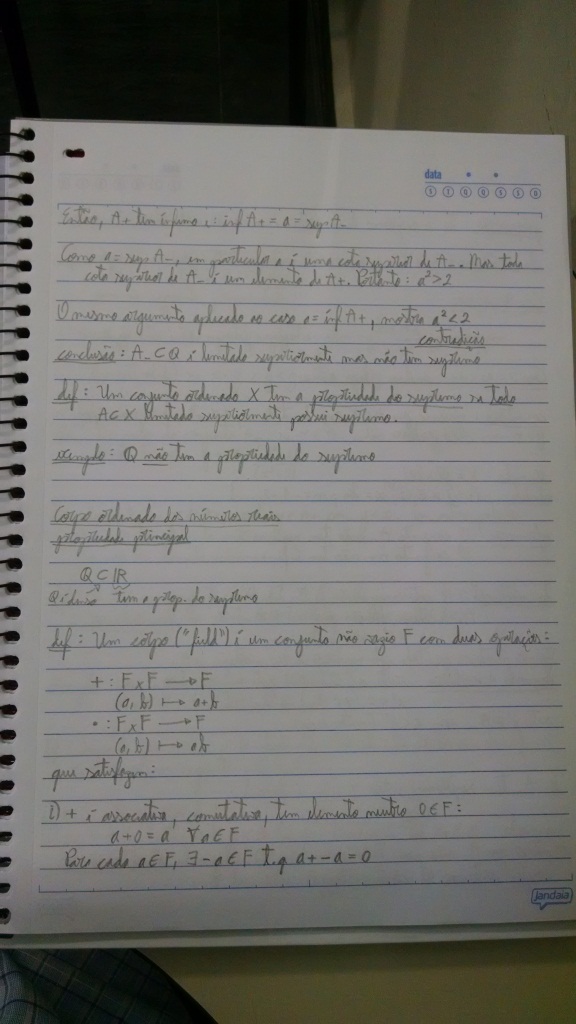 data
S T Q Q S S D
Então, A+ tem ínfimo e: inf A+ = a = sup A-
Como a = sup A-, em particular a é uma cota superior de A-. Mas toda
cota superior de A- é um elemento de A+. Portanto: a² > 2
O mesmo argumento aplicado ao caso a = inf A+, mostra a² < 2
contradição
conclusão: A- ⊂ Q é limitado superiormente mas não tem supremo
def: Um conjunto ordenado X tem a propriedade do supremo se todo
A ⊂ X limitado superiormente possui supremo.
exemplo: Q não tem a propriedade do supremo
Corpo ordenado dos números reais
propriedade principal
Q ⊂ ℝ
Q é denso tem a prop. do supremo
def: Um corpo ("field") é um conjunto não vazio F com duas operações:
+ : F x F → F
(a, b) ↦ a+b
• : F x F → F
(a, b) ↦ ab
que satisfazem:
1) + é associativa, comutativa, tem elemento neutro 0 ∈ F:
a + 0 = a ∀ a ∈ F
Para cada a ∈ F, ∃ -a ∈ F t.q a + -a = 0
jandaia